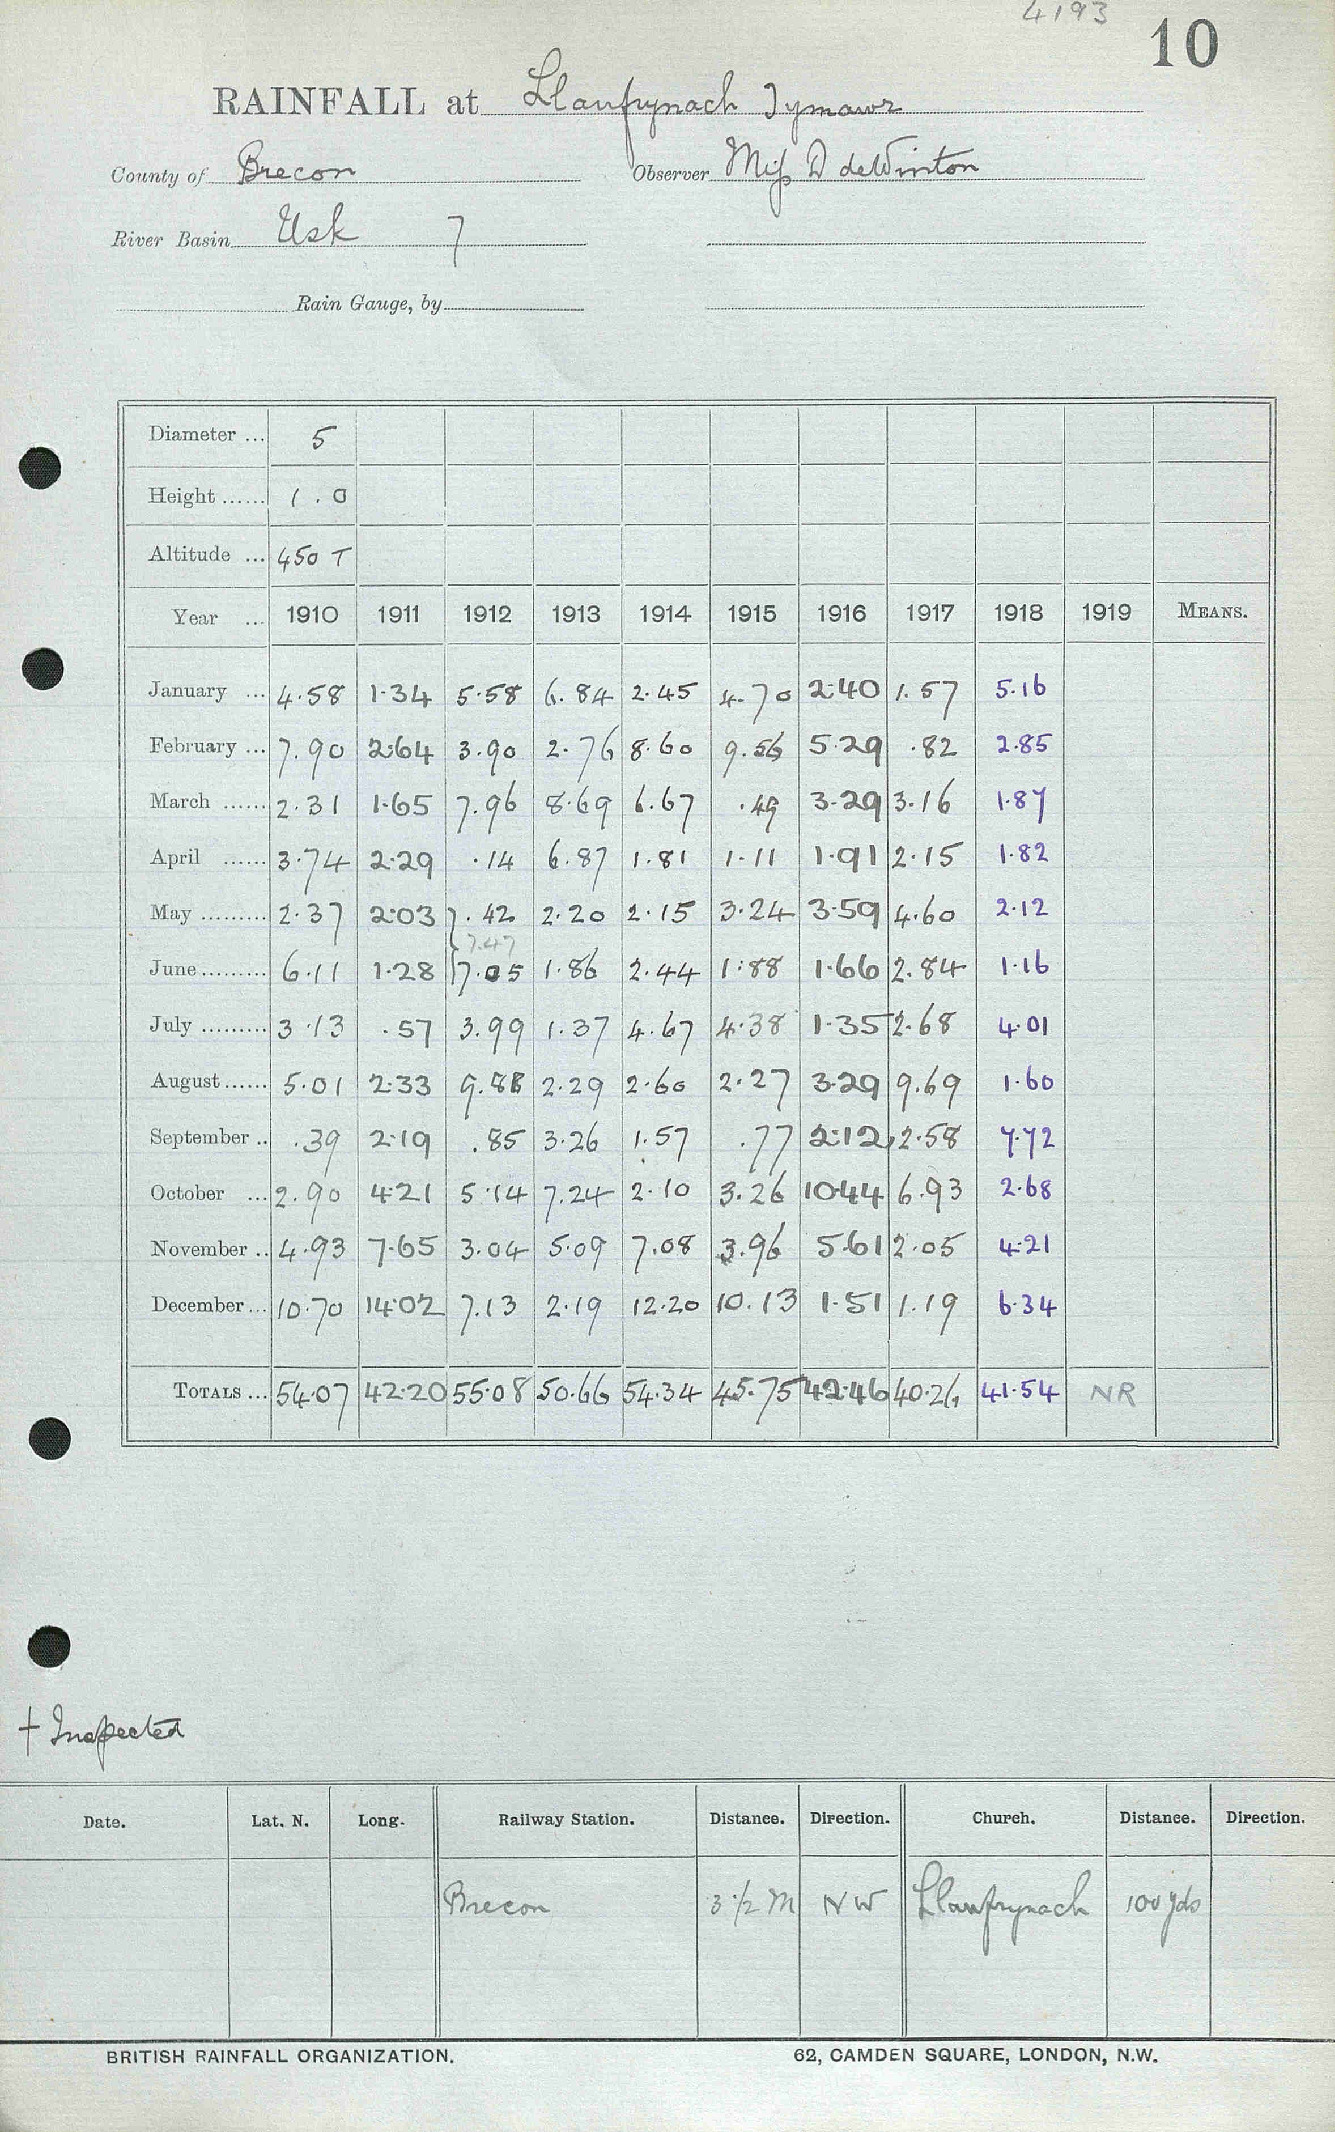 4193
10
RAINFALL at Llanfrynach Tymawr
County of Brecon Observer Miss D deWinton
River Basin Usk 7
Rain Gauge, by
Diameter ... 5
Height ...... 1.0
Altitude ... 450 T
Year ... 1910 1911 1912 1913 1914 1915 1916 1917 1918 1919 MEANS.
January ... 4.58 1.34 5.58 6.84 2.45 4.70 2.40 1.57 5.16
February ... 7.90 2.64 3.90 2.76 8.60 9.56 5.29 .82 2.85
March ...... 2.31 1.65 7.96 8.69 6.67 .49 3.29 3.16 1.87
April ...... 3.74 2.29 .14 6.87 1.81 1.11 1.91 2.15 1.82
May ......... 2.37 2.03 .42 2.20 2.15 3.24 3.59 4.60 2.12
7.47
June......... 6.11 1.28 7.05 1.86 2.44 1.88 1.66 2.84 1.16
July ......... 3.13 .57 3.99 1.37 4.67 4.38 1.35 2.68 4.01
August...... 5.01 2.33 9.88 2.29 2.60 2.27 3.29 9.69 1.60
September .. .39 2.19 .85 3.26 1.57 .77 2.12 2.58 7.72
October ... 2.90 4.21 5.14 7.24 2.10 3.26 10.44 6.93 2.68
November .. 4.93 7.65 3.04 5.09 7.08 3.96 5.61 2.05 4.21
December ... 10.70 14.02 7.13 2.19 12.20 10.13 1.51 1.19 6.34
TOTALS ... 54.07 42.20 55.08 50.66 54.34 45.75 42.46 40.26 41.54 NR
† Inspected
Date. Lat. N. Long. Railway Station. Distance. Direction. Church. Distance. Direction.
Brecon 3 1/2 M NW Llanfrynach 100 yds
BRITISH RAINFALL ORGANIZATION. 62, CAMDEN SQUARE, LONDON, N.W.